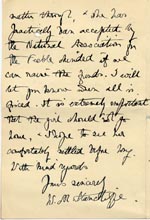 matter through, & she has
practically been accepted by
the National Association for
the Feeble Minded if we
can raise the funds. I will
let you know when all is
fixed. It is extremely important
that the girl should not go
home, & I hope to see her
comfortably settled before long.
With kind regards
Yours sincerely
W. M.